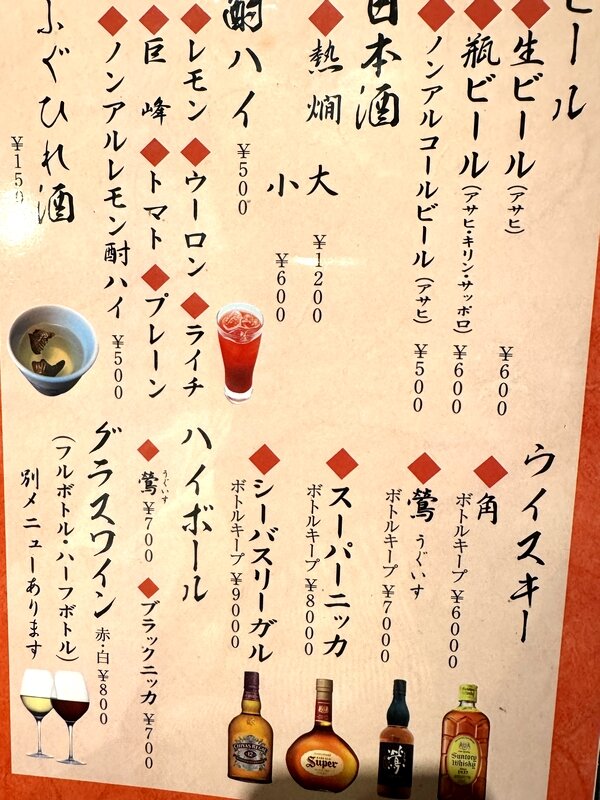 ビール
生ビール(アサヒ) ¥600
瓶ビール(アサヒ・キリン・サッポロ) ¥600
ノンアルコールビール(アサヒ) ¥500
日本酒
熱燗 大 ¥1200
小 ¥600
酎ハイ ¥500
レモン ウーロン ライチ
巨峰 トマト プレーン
ノンアルレモン酎ハイ ¥500
ふぐひれ酒
¥150
ウイスキー
角
ボトルキープ ¥6000
鶯 うぐいす
ボトルキープ ¥7000
スーパーニッカ
ボトルキープ ¥8000
シーバスリーガル
ボトルキープ ¥9000
ハイボール
鶯 うぐいす ¥700
ブラックニッカ ¥700
グラスワイン 赤・白 ¥800
(フルボトル・ハーフボトル)
別メニューあります
CHIVAS REGAL
12
Super
鶯
Suntory
Whisky